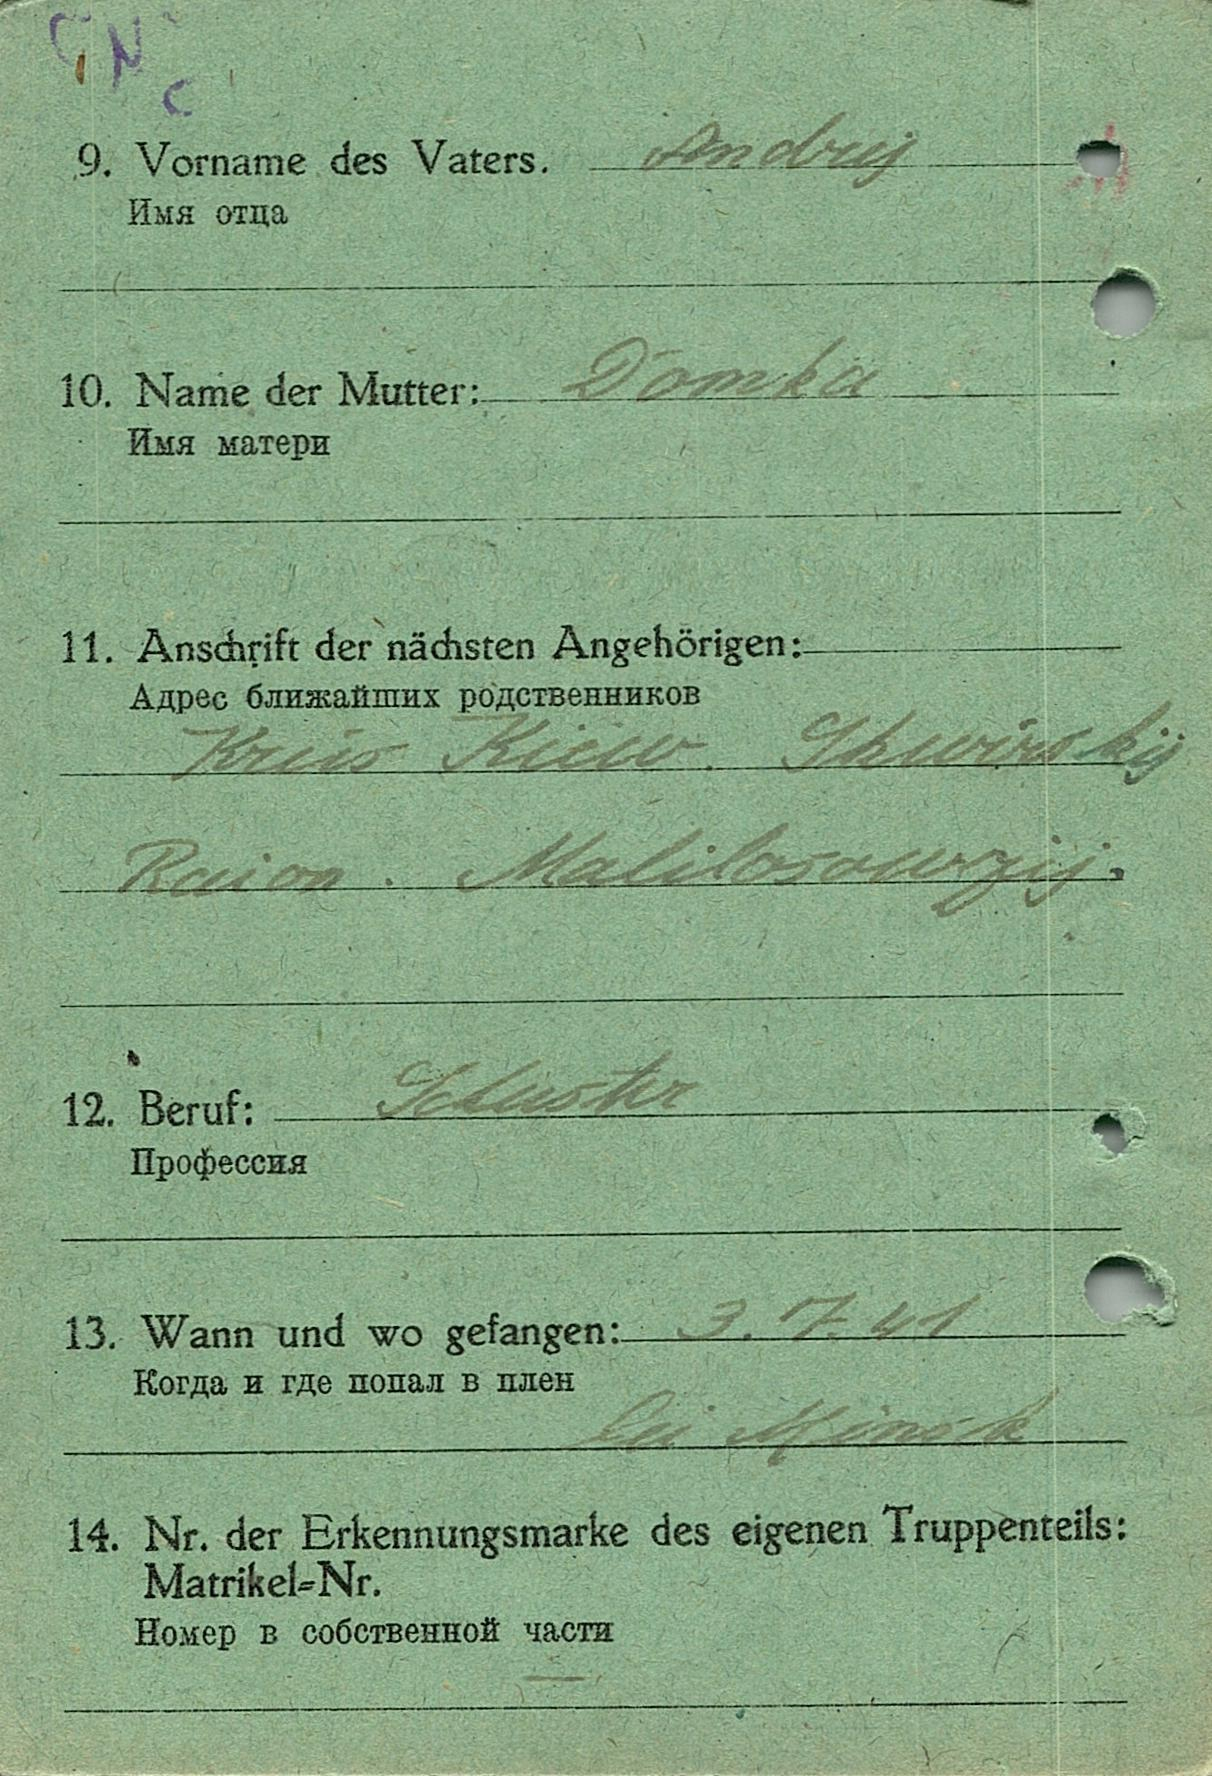 9. Vorname des Vaters. Andrij
Имя отца
10. Name der Mutter: Domka
Имя матери
11. Anschrift der nächsten Angehörigen:
Адрес ближайших родственников
Kreis Kiew. Skwirskij
Raion.
12. Beruf: Schuster
Профессия
13. Wann und wo gefangen: 3.7.41
Когда и где попал в плен
bei Minsk
14. Nr. der Erkennungsmarke des eigenen Truppenteils:
Matrikel-Nr.
Номер в собственной части
—